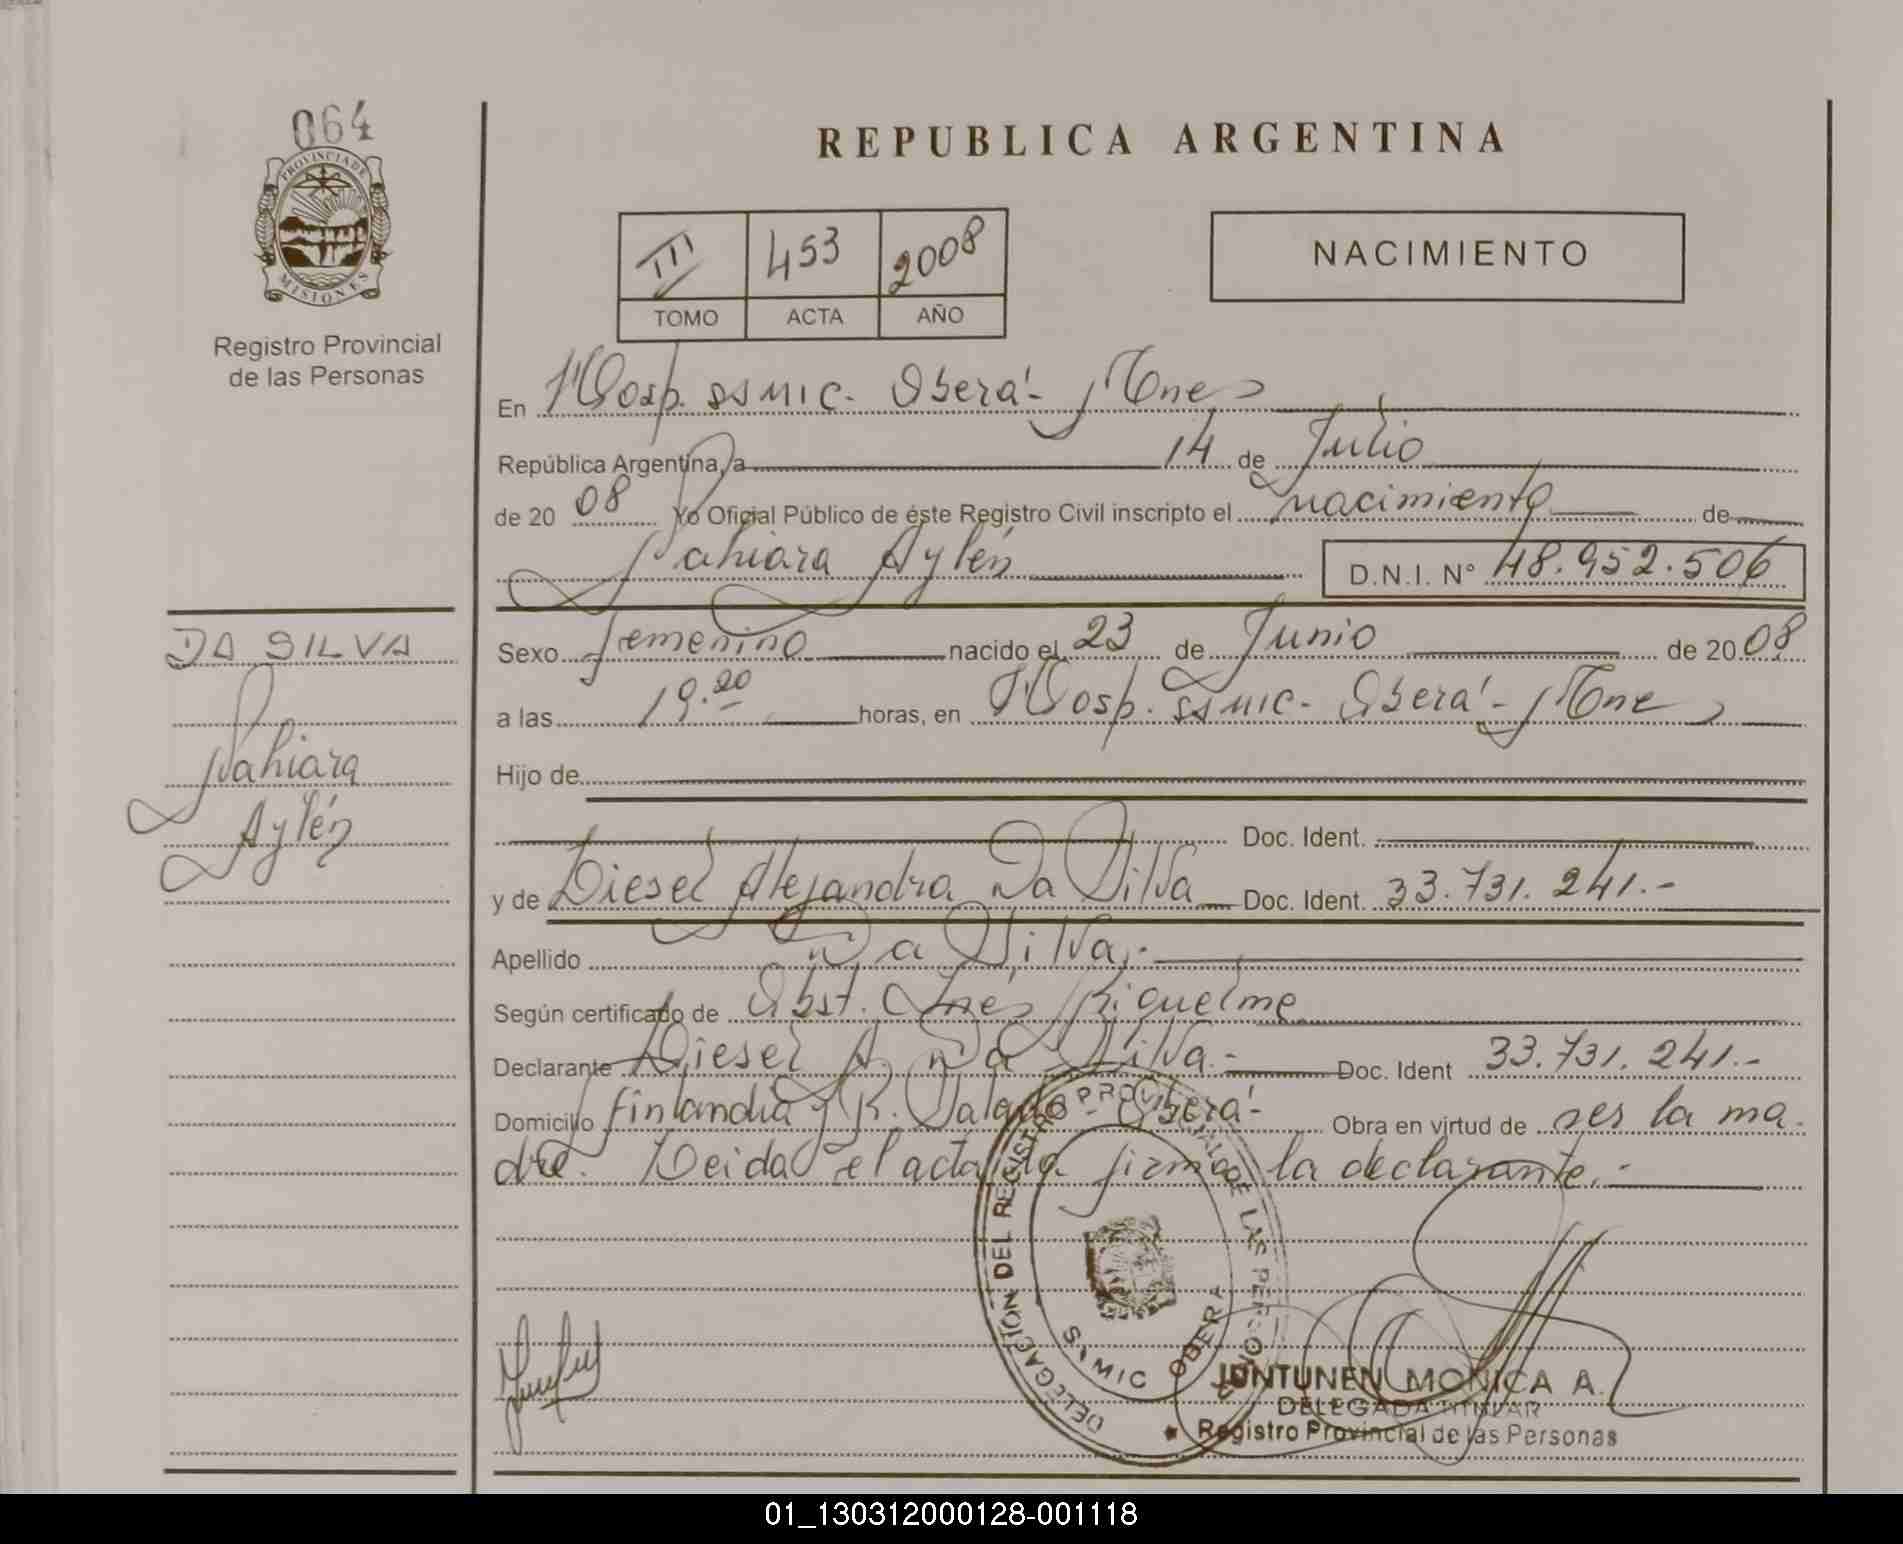 064
PROVINCIA DE
MISIONES
Registro Provincial
de las Personas
REPUBLICA ARGENTINA
III 453 2008
TOMO ACTA AÑO
NACIMIENTO
En Hosp. SSMIC. Oberá - Mnes
República Argentina, a 14 de Julio
de 20 08 Yo Oficial Público de éste Registro Civil inscripto el nacimiento de
Nahiara Aylén D.N.I. N° 48.952.506
Sexo femenino nacido el 23 de Junio de 20 08
a las 19.20 horas, en Hosp. SSMIC. Oberá - Mnes
Hijo de
Doc. Ident.
y de Diesel Alejandra Da Silva Doc. Ident. 33.731.241.-
Apellido Da Silva.-
Según certificado de Obst. Inés Riquelme
Declarante Diesel A. Da Silva.- Doc. Ident 33.731.241.-
Domicilio Finlandia y R. Oberá- Obra en virtud de ser la ma-
dre. Leida el acta la firma la declarante.-
DA SILVA
Nahiara
Aylén
DELEGACIÓN DEL REGISTRO PROVINCIAL DE LAS PERSONAS
SAMIC OBERA
JUNTUNEN MONICA A.
DELEGADA TITULAR
Registro Provincial de las Personas
01_130312000128-001118